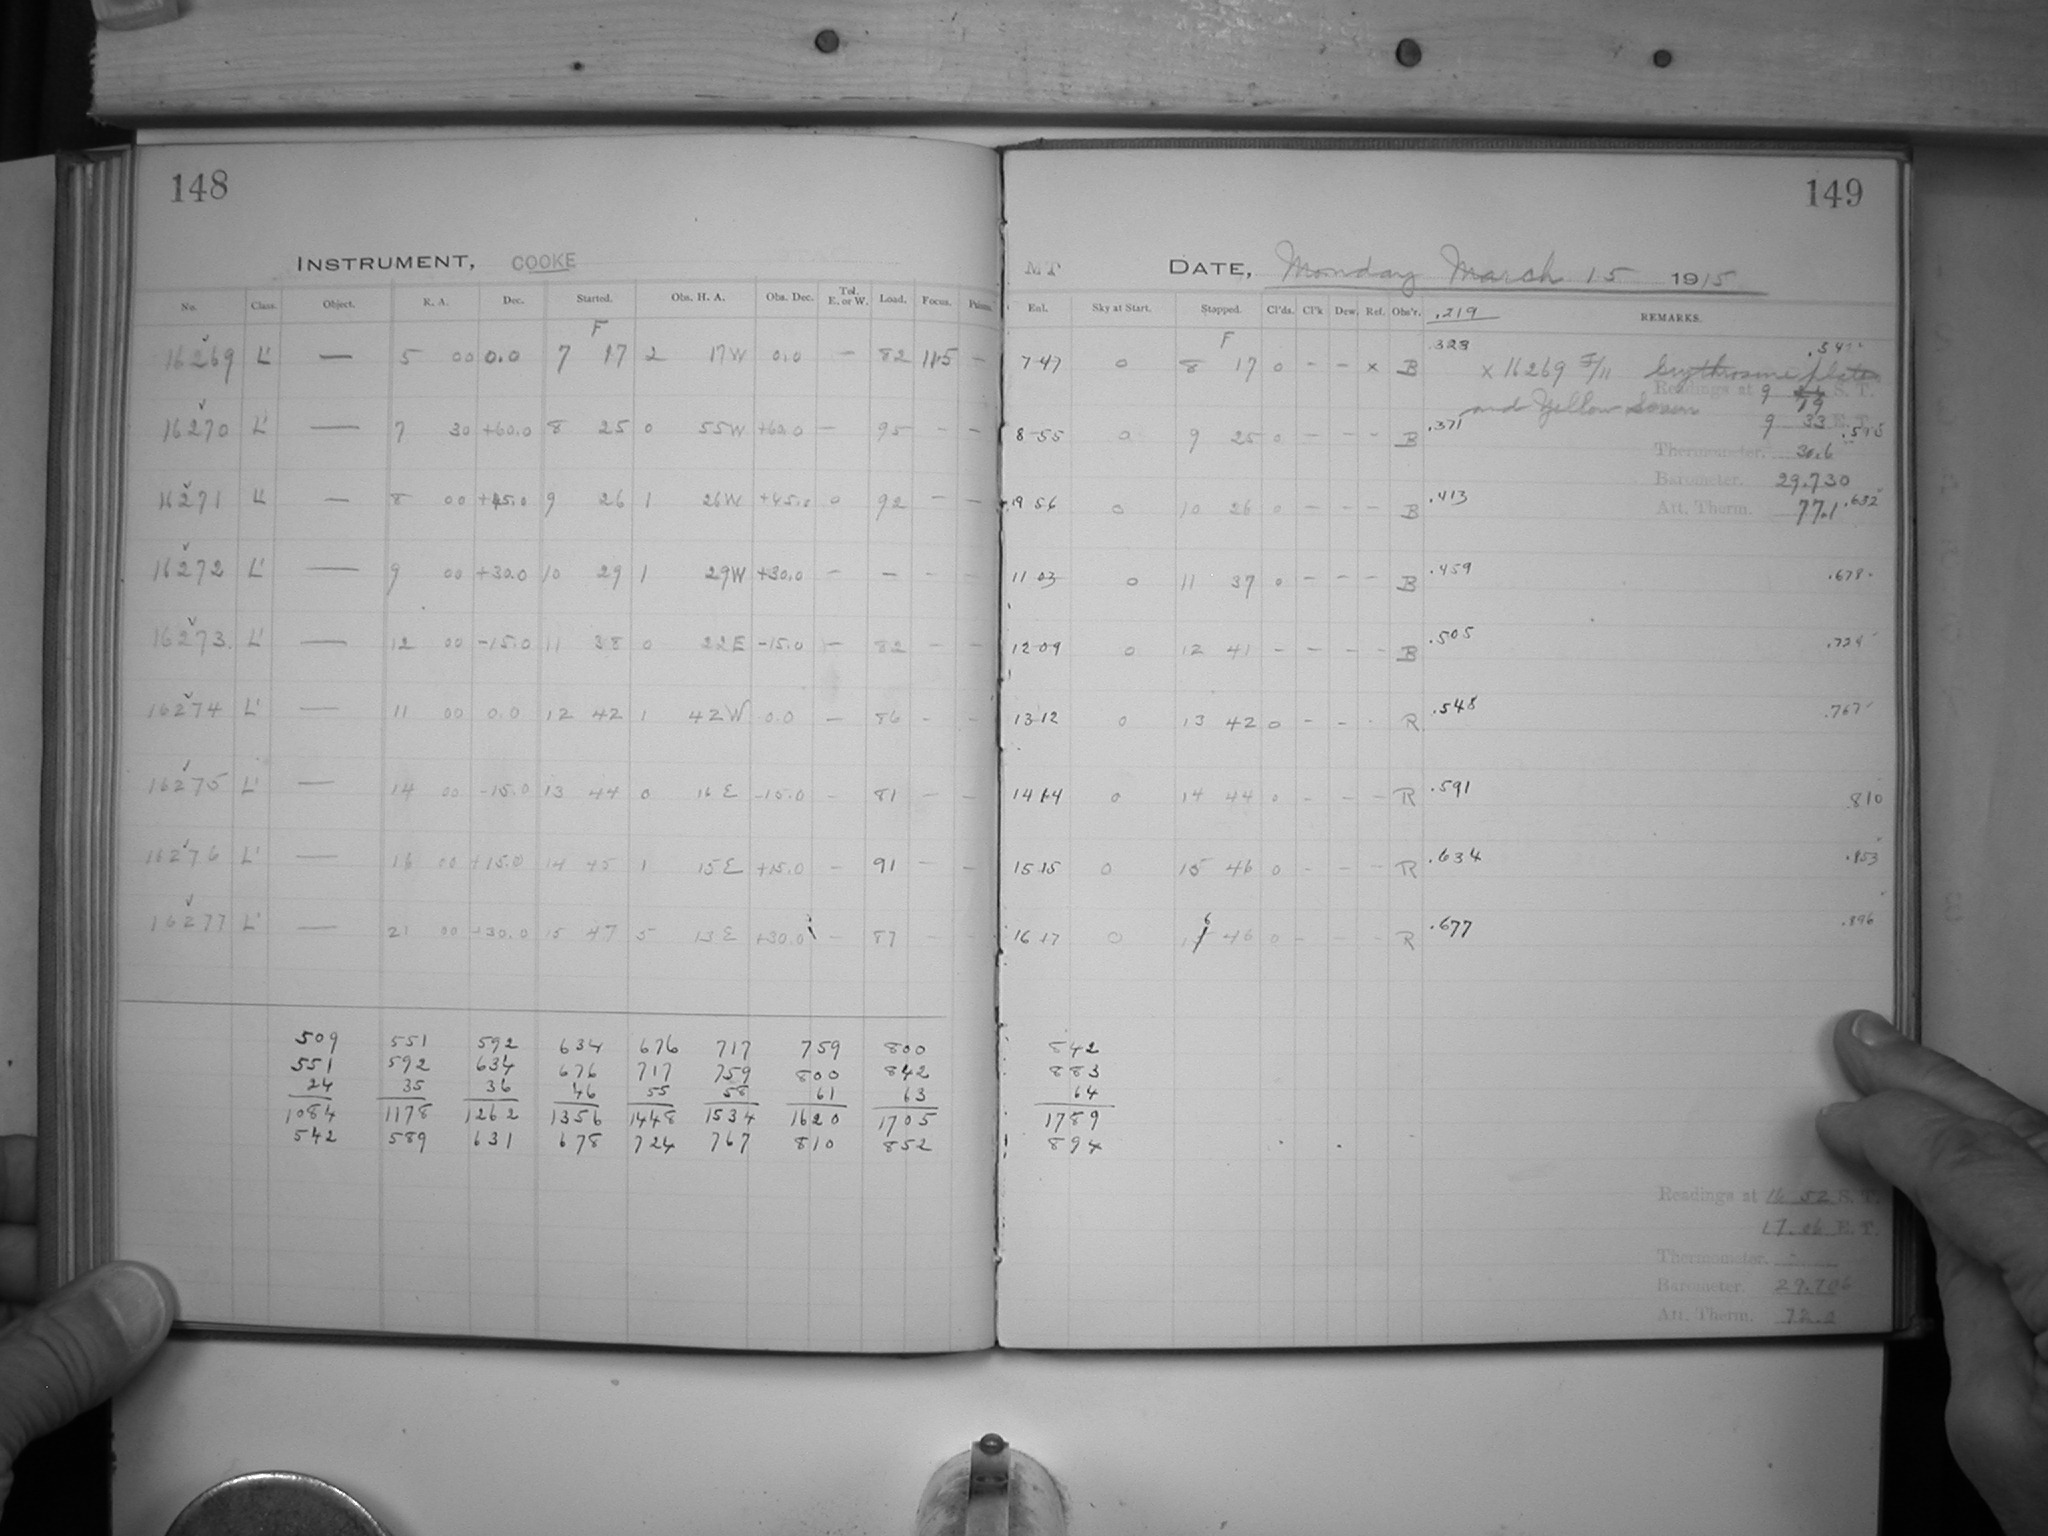 148
INSTRUMENT, COOKE
No. Class. Object. R. A. Dec. Started. Obs. H. A. Obs. Dec. Tel. E. or W. Load. Focus.
F
16269 L' — 5 00 0.0 7 17 2 17W 0.0 — 82 11.5 —
16270 L' — 7 30 +60.0 8 25 0 55W +60.0 — 95 - -
16271 L' — 8 00 +45.0 9 26 1 26W +45.0 0 92 - -
16272 L' — 9 00 +30.0 10 29 1 29W +30.0 — — - -
16273 L' — 12 00 -15.0 11 38 0 22E -15.0 — 82 - -
16274 L' — 11 00 0.0 12 42 1 42W 0.0 — 86 - -
16275 L' — 14 00 -15.0 13 44 0 16E -15.0 - 81 - -
16276 L' — 16 00 +15.0 14 45 1 15E +15.0 - 91 - -
16277 L' — 21 00 +30.0 15 47 5 13E +30.0 - 87 - -
509 551 592 634 676 717 759 800
551 592 634 676 717 759 800 842
24 35 36 46 55 58 61 63
1084 1178 1262 1356 1448 1534 1620 1705
542 589 631 678 724 767 810 852
149
MT DATE, Monday March 15 1915
Enl. Sky at Start. Stopped. Cl'ds. Cl'k Dew. Ref. Obs'r. .219 REMARKS.
F
7 47 0 8 17 0 - - x B .328 x 16269 F/11 Erythrosine plate
and Yellow Screen
Readings at 9 19 S. T.
9 33 E. T.
8 55 0 9 25 0 - - - B .371
Thermometer. 30.6
Barometer. 29.730
Att. Therm. 77.1
9 56 0 10 26 0 - - - B .413 .632
11 03 0 11 37 0 - - - B .459 .678
12 09 0 12 41 - - - - B .505 .724
13 12 0 13 42 0 - - - R .548 .767
14 14 0 14 44 0 - - - R .591 810
15 15 0 15 46 0 - - - R .634 .853
16 17 0 16 46 0 - - - R .677 .896
842
883
64
1789
894
Readings at 16 52 S. T.
17.06 E. T.
Thermometer. -
Barometer. 29.706
Att. Therm.